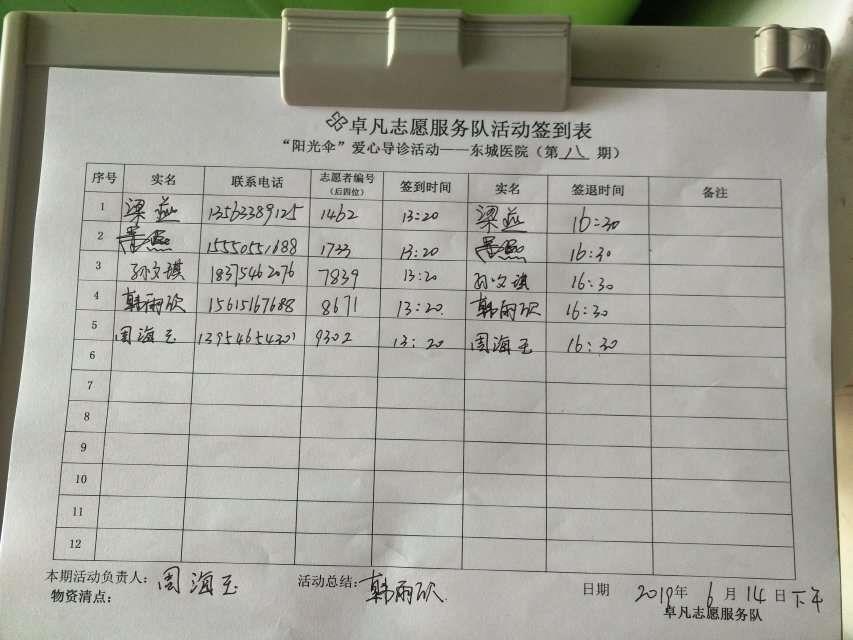 卓凡志愿服务队活动签到表
“阳光伞”爱心导诊活动——东城医院（第 八 期）
序号 实名 联系电话 志愿者编号（后四位） 签到时间 实名 签退时间 备注
1 梁益 13563389125 1462 13:20 梁益 16:30
2 15550551688 1733 13:20 16:30
3 孙文琪 18375462076 7839 13:20 孙文琪 16:30
4 韩雨欣 15615167688 8671 13:20 韩雨欣 16:30
5 周海玉 13954654301 9302 13:20 周海玉 16:30
6
7
8
9
10
11
12
本期活动负责人：周海玉 活动总结：韩雨欣 日期 2019年 6月 14日下午
物资清点： 卓凡志愿服务队